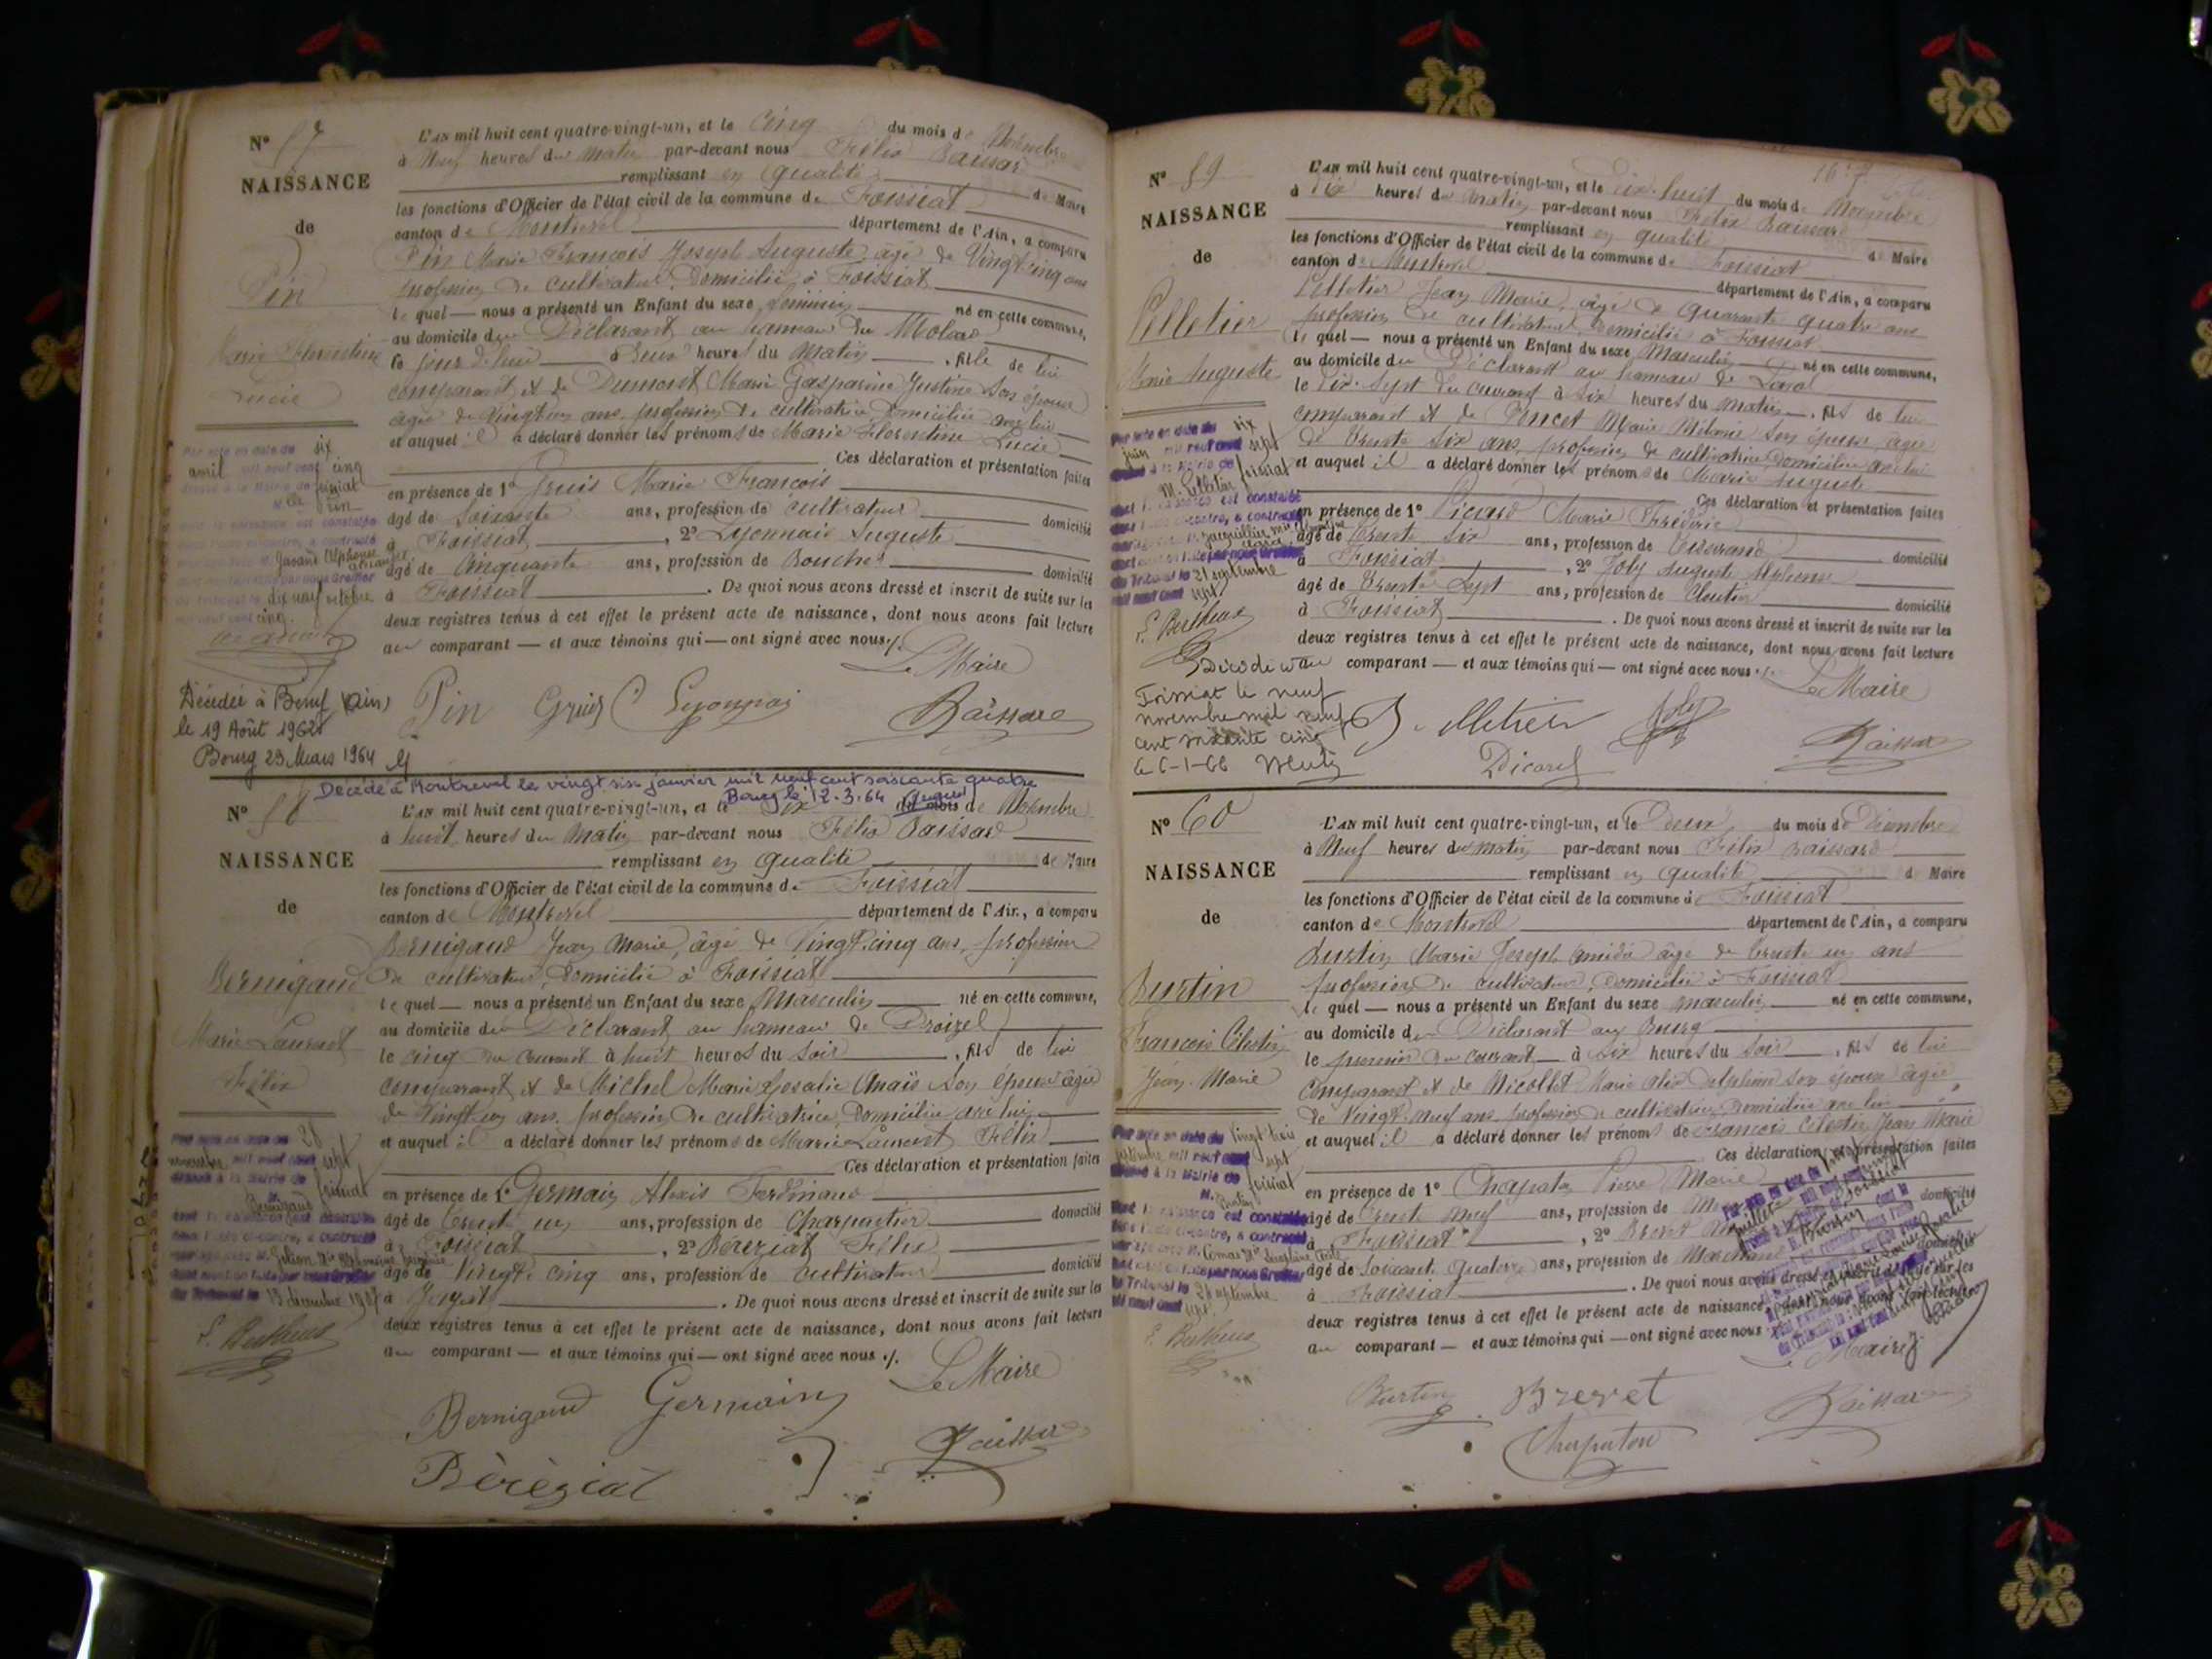 N° 57
NAISSANCE
de
Pin
Marie Florentine
Lucie
L'AN mil huit cent quatre-vingt-un, et le Cinq du mois de Novembre
à Neuf heures du matin par-devant nous Félix Raissard
remplissant en qualité de Maire
les fonctions d'Officier de l'état civil de la commune de Foissiat
canton de Montrevel département de l'Ain, a comparu
Pin Marie François Joseph Auguste âgé de Vingt cinq ans
profession de cultivateur, domicilié à Foissiat
le quel — nous a présenté un Enfant du sexe féminin né en cette commune,
au domicile du Déclarant au hameau du Molard
le jour d'hier à deux heures du Matin, fille de lui
comparant et de Dumont Marie Gasparine Justine son épouse
âgée de vingt un ans, profession de cultivatrice, domiciliée avec lui
et auquel il a déclaré donner les prénoms de Marie Florentine Lucie
Ces déclaration et présentation faites
en présence de 1° Gruis Marie François
âgé de Soixante ans, profession de cultivateur domicilié
à Foissiat, 2° Lyonnais Auguste
âgé de Cinquante ans, profession de Boucher domicilié
à Foissiat. De quoi nous avons dressé et inscrit de suite sur les
deux registres tenus à cet effet le présent acte de naissance, dont nous avons fait lecture
au comparant — et aux témoins qui — ont signé avec nous./.
Le Maire
Pin Gruis Lyonnais Raissard
Par acte en date du six
avril mil neuf cent cinq
dressé à la Mairie de foissiat
Mlle Pin
dont la naissance est constatée
dans l'acte ci-contre, a contracté
mariage avec M. Alphonse
dont mention faite par nous Greffier
du Tribunal le dix neuf octobre
mil neuf cent cinq.
Décédée à (Ain)
le 19 Août 1962
Bourg 23 Mars 1964
Décédé à Montrevel le vingt six janvier mil neuf cent soixante quatre
Bourg le 12.3.64
N° 58
NAISSANCE
de
Bernigaud
Marie Laurent
Félix
L'AN mil huit cent quatre-vingt-un, et le Six du mois de Novembre
à huit heures du Matin par-devant nous Félix Raissard
remplissant en qualité de Maire
les fonctions d'Officier de l'état civil de la commune de Foissiat
canton de Montrevel département de l'Ain, a comparu
Bernigaud Jean Marie, âgé de Vingt cinq ans, profession
de cultivateur, domicilié à Foissiat
le quel — nous a présenté un Enfant du sexe Masculin né en cette commune,
au domicile du Déclarant, au hameau de Droizel
le cinq du courant à huit heures du soir, fils de lui
comparant et de Michel Marie Rosalie Anaïs son épouse âgée
de Vingt un ans, profession de cultivatrice, domiciliée avec lui
et auquel il a déclaré donner les prénoms de Marie Laurent Félix
Ces déclaration et présentation faites
en présence de 1° Germain Alexis Ferdinand
âgé de Trente un ans, profession de Charpentier domicilié
à Foissiat, 2° Béréziat Félix
âgé de Vingt cinq ans, profession de cultivateur domicilié
à. De quoi nous avons dressé et inscrit de suite sur les
deux registres tenus à cet effet le présent acte de naissance, dont nous avons fait lecture
au comparant — et aux témoins qui — ont signé avec nous ./.
Le Maire
Bernigaud Germain
Béréziat Raissard
Par acte en date du 28
novembre mil neuf cent sept
dressé à la Mairie de foissiat
M. Bernigaud
dont la naissance est constatée
dans l'acte ci-contre, a contracté
mariage avec M.
dont mention faite par nous Greffier
du Tribunal le 13 décembre 1907
E. Berthoud
N° 59
NAISSANCE
de
Pelletier
Marie Auguste
L'AN mil huit cent quatre-vingt-un, et le dix-huit du mois de Novembre
à dix heures du matin par-devant nous Félix Raissard
remplissant en qualité de Maire
les fonctions d'Officier de l'état civil de la commune de Foissiat
canton de Montrevel département de l'Ain, a comparu
Pelletier Jean Marie, âgé de Quarante quatre ans
profession de cultivateur, domicilié à Foissiat
le quel — nous a présenté un Enfant du sexe Masculin né en cette commune,
au domicile du Déclarant au hameau de
le dix-sept du courant à six heures du matin, fils de lui
comparant et de Poncet Marie Mélanie son épouse, âgée
de trente six ans, profession de cultivatrice, domiciliée avec lui
et auquel il a déclaré donner les prénoms de Marie Auguste
Ces déclaration et présentation faites
en présence de 1° Picard Marie Frédéric
âgé de trente six ans, profession de Tisserand domicilié
à Foissiat, 2° Joly Auguste Alphonse
âgé de trente sept ans, profession de domicilié
à Foissiat. De quoi nous avons dressé et inscrit de suite sur les
deux registres tenus à cet effet le présent acte de naissance, dont nous avons fait lecture
au comparant — et aux témoins qui — ont signé avec nous ./.
Le Maire
Pelletier Joly
Picard Raissard
Par acte en date du six
juin mil neuf cent sept
dressé à la Mairie de foissiat
M. Pelletier
dont la naissance est constatée
dans l'acte ci-contre, a contracté
mariage avec M.
dont mention faite par nous Greffier
du Tribunal le 21 septembre
mil neuf cent sept
E. Berthoud
Décédé à
Foissiat le neuf
novembre mil neuf
cent soixante cinq
le 6-1-66
N° 60
NAISSANCE
de
Burtin
François Célestin
Jean-Marie
L'AN mil huit cent quatre-vingt-un, et le Deux du mois de Décembre
à Neuf heures du matin par-devant nous Félix Raissard
remplissant en qualité de Maire
les fonctions d'Officier de l'état civil de la commune de Foissiat
canton de Montrevel département de l'Ain, a comparu
Burtin Marie Joseph Amédé âgé de trente un ans
profession de cultivateur, domicilié à Foissiat
le quel — nous a présenté un Enfant du sexe masculin né en cette commune,
au domicile du Déclarant au Bourg
le premier du courant à six heures du soir, fils de lui
comparant et de Nicollet Marie Delphine son épouse âgée
de Vingt-neuf ans, profession de cultivatrice, domiciliée avec lui
et auquel il a déclaré donner les prénoms de François Célestin Jean Marie
Ces déclaration et présentation faites
en présence de 1° Chapaton Pierre Marie
âgé de trente neuf ans, profession de domicilié
à Foissiat, 2° Brevet
âgé de Soixante Quatorze ans, profession de domicilié
à Foissiat. De quoi nous avons dressé et inscrit de suite sur les
deux registres tenus à cet effet le présent acte de naissance, dont nous avons fait lecture
au comparant — et aux témoins qui — ont signé avec nous
Le Maire
Burtin Brevet Raissard
Chapaton
Par acte en date du vingt trois
septembre mil neuf cent sept
dressé à la Mairie de foissiat
M. Burtin
dont la naissance est constatée
dans l'acte ci-contre, a contracté
mariage avec M.
dont mention faite par nous Greffier
du Tribunal le 28 septembre
mil neuf cent sept
E. Berthoud